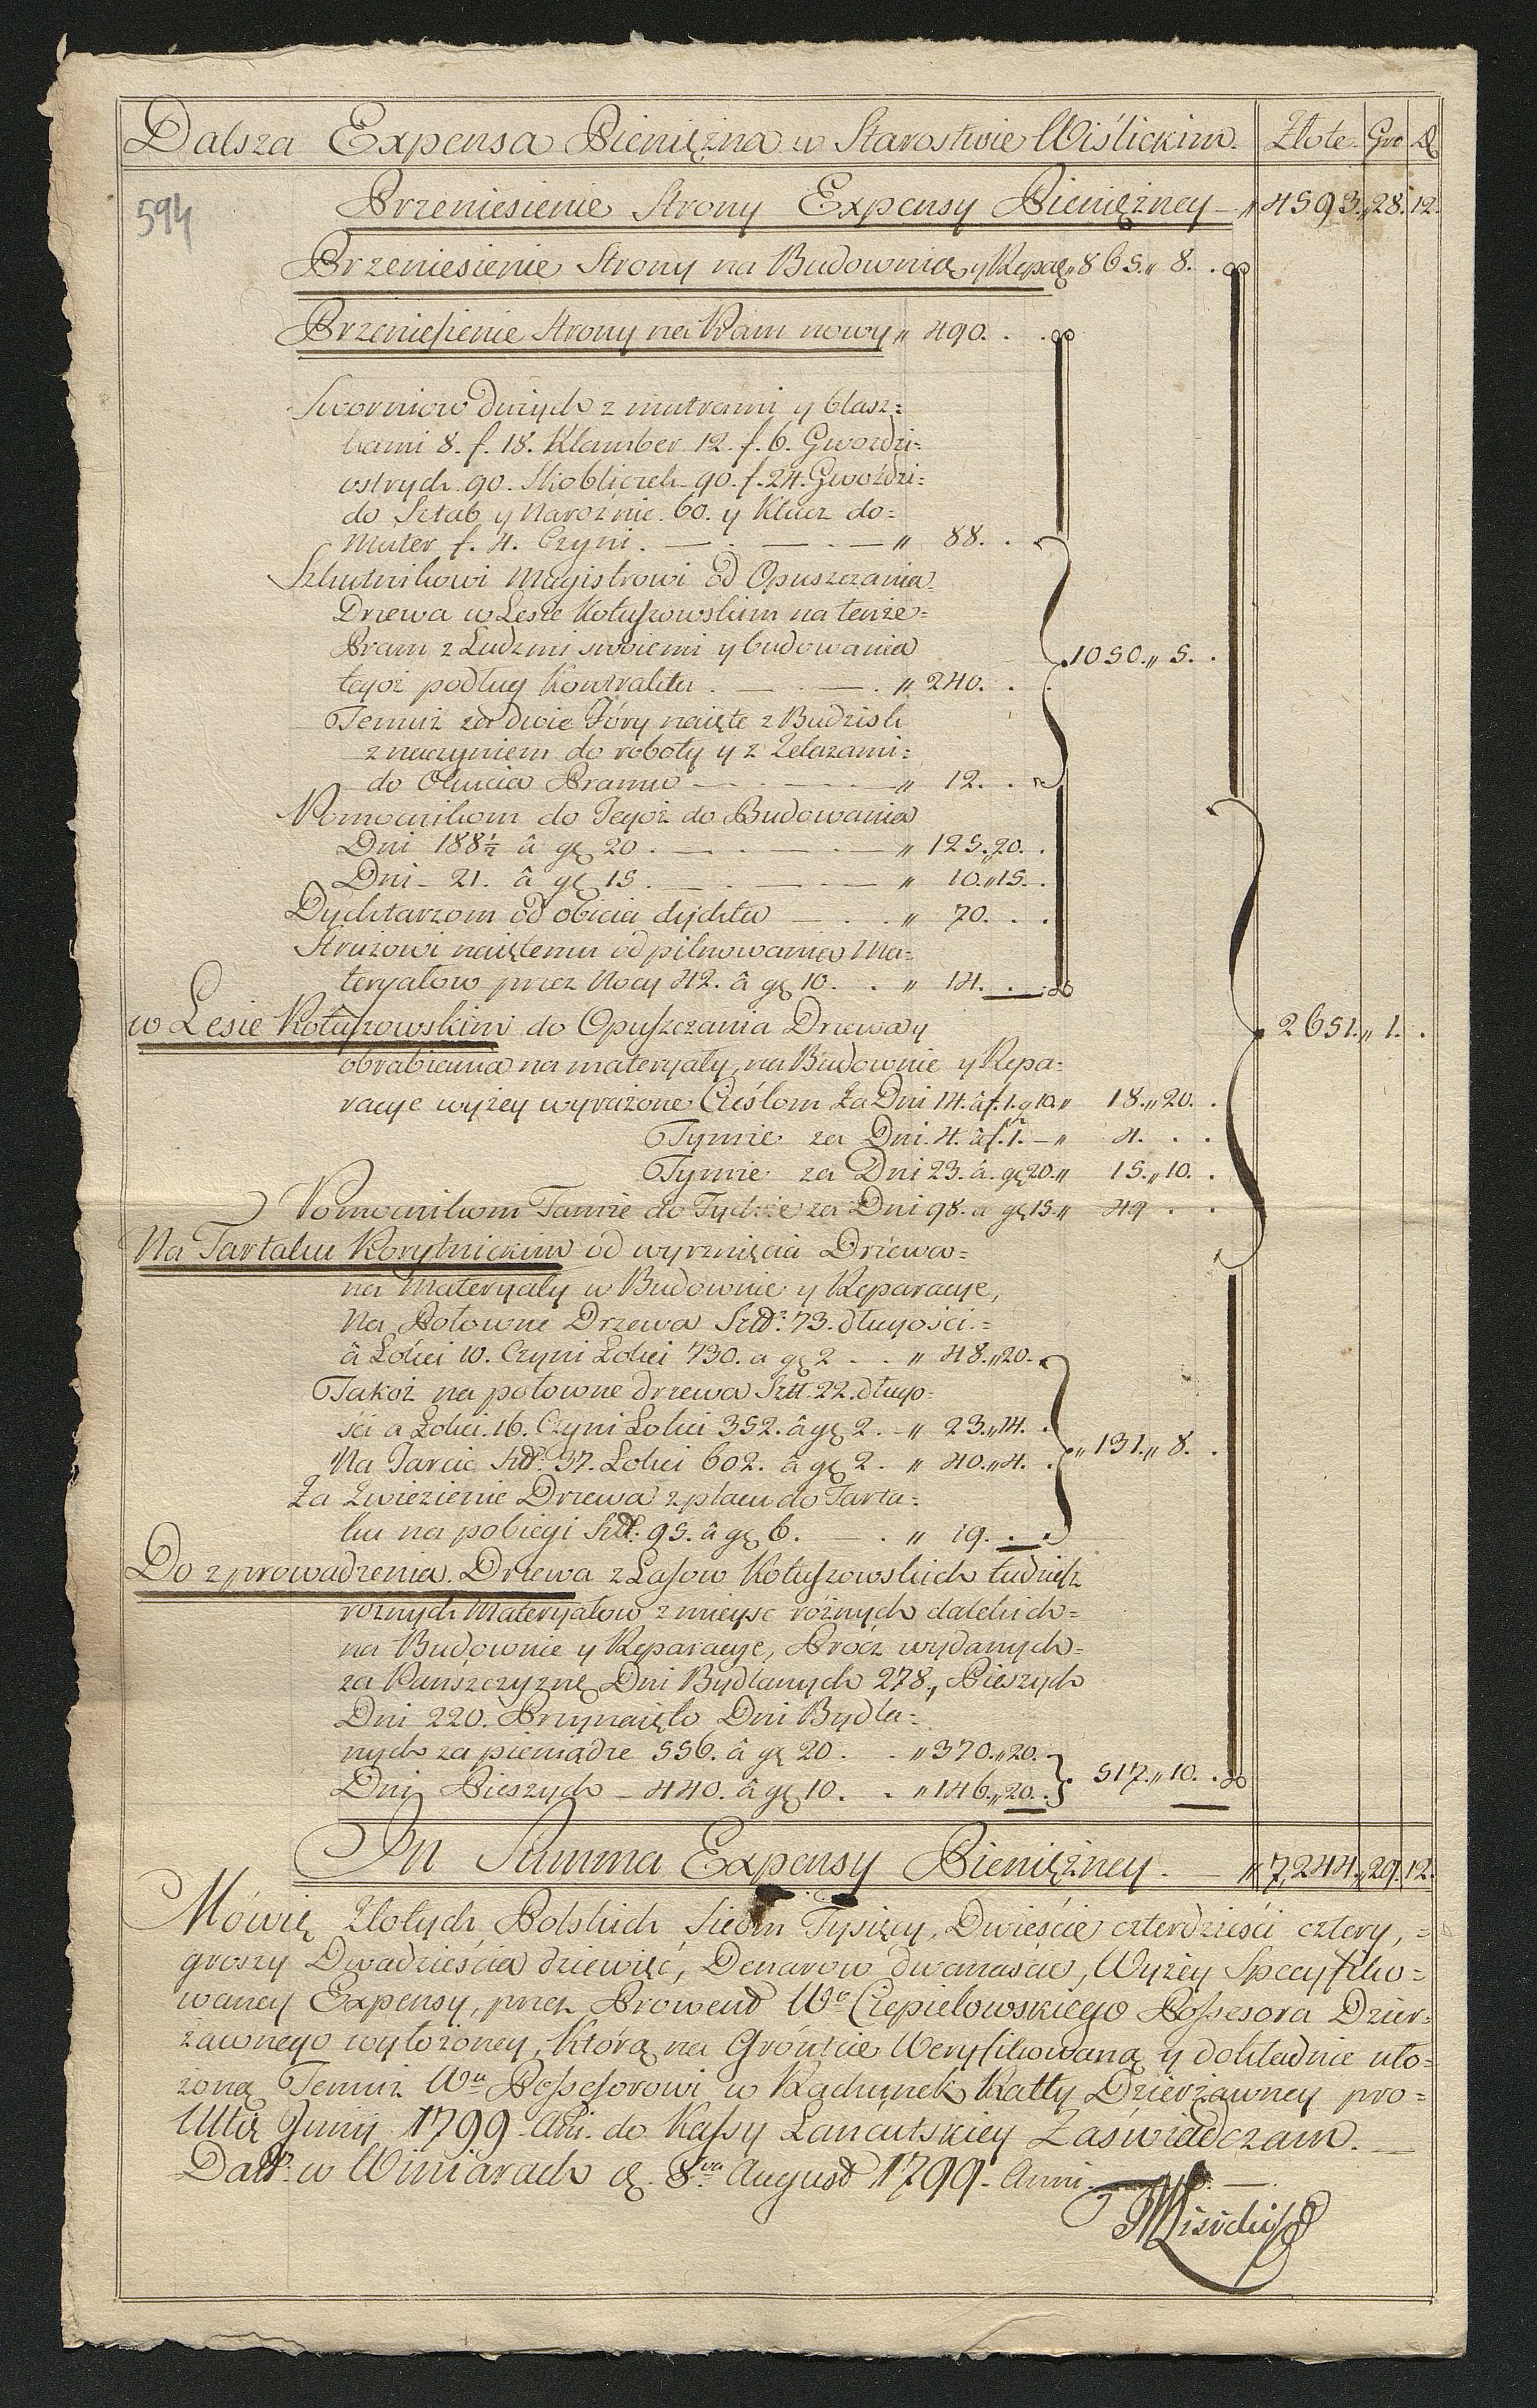 Dalsza Expensa Pieniężna w Starostwie Wiślickim. Złote. Gro D
594
Przeniesienie Strony Expensy Pieniężney — „ 4593. „ 28. 12.
Przeniesienie Strony na Budownią y Repaę „ 865. „ 8. .
Przeniesienie Strony na Pram nowy „ 490. . .
Sworniow dużych z mutrami y blasz=
kami 8. f. 18. Klamber 12. f. 6. Gwozdzi=
ostrych 90. Skobliczek 90. f. 24. Gwoździ=
do Sztab y Narożnic. 60. y Klucz do=
Muter f. 4. Czyni. — . — . — „ 88. .
Szkutnikowi Magistrowi od Opuszczania
Drzewa w Lesie Kotuszowskim na tenże=
Pram z Ludzmi swoiemi y budowania
tegoż podług Kontraktu . — . — . „ 240. .
1050. „ 5. .
Temuż za dwie Fóry naięte z Budzisk
z naczyniem do roboty y z Żelazami=
do Okucia Pramu — . — . — „ 12. .
Pomocnikom do Tegoż do Budowania
Dni 188½ â gę 20 . — . — . — „ 125. 20. .
Dni – 21. â gę 15 . — . — . — „ 10. „ 15. .
Dychtarzom od obicia dychtu — . . „ 70. . .
Stróżowi naiętemu od pilnowania Ma=
teryałow przez Nocy 42. â gę 10. . „ 14. . .
w Lesie Kotuszowskim do Opuszczania Drzewa y
2651. „ 1. .
obrabiania na materyały, na Budownie y Repa=
racye wyżey wyrażone Cieślom Za Dni 14. â f. 1. g 10. „ 18. „ 20. .
Tymże za Dni. 4. â f. 1. – „ 4. . .
Tymże za Dni 23. â. gę 20. „ 15. „ 10. .
Pomocnikom Tamże do Tychże za Dni 98. a gę 15. „ 49 . .
Na Tartaku Korytnickim od wyrznięcia Drzewa=
na Materyały w Budownie y Reparacye,
Na Połowne Drzewa Szt: 73. długości.=
â Łokci 10. Czyni Łokci 730. a gę 2 . . „ 48. „ 20.
Takoż na połowne drzewa Szt. 22. długo=
ści a Łokci. 16. Czyni Łokci 352. â gę 2. – „ 23. „ 14. .
„ 131. „ 8. .
Na Tarcic Szt. 37. Łokci 602. â gę 2. „ 40. „ 4. .
Za Zwiezienie Drzewa z placu do Tarta=
ku na pobiegi Szt. 95. â gę 6. — . „ 19. . .
Do zprowadzenia Drzewa z Lasow Kotuszowskich tudzież
roznych Materyałow z mieysc różnych dalekich=
na Budownie y Reparacye, Prócz wydanych=
za Pańszczyznę Dni Bydlanych 278, Pieszych
Dni 220. Przynaięto Dni Bydla=
nych za pieniądze 556. â gę 20. . „ 370. „ 20.
Dni Pieszych – 440. â gę 10. . „ 146. „ 20. . 517. „ 10. .
In Summa Expensy Pieniężney. — „ 7,244. „ 29. 12.
Mówię Złotych Polskich Siedm Tysięcy, Dwieście czterdzieści cztery, =
groszy Dwadzieścia dziewięć, Denarow dwanaście, Wyżey Specyfiko=
waney Expensy, przez Prowent Wo Ciepielowskiego Possesora Dzier=
żawnego wyłożoney, Którą na Gróncie Weryfikowaną y dokładnie uło=
żoną Temuż Wu Possesorowi w Rachunek Ratty Dzierżawney pro=
Ultia Juny 1799 Ani. do Kassy Lancutskiey Zaświadczam. —
Datt: w Winiarach d. 8va August 1799. Anni.